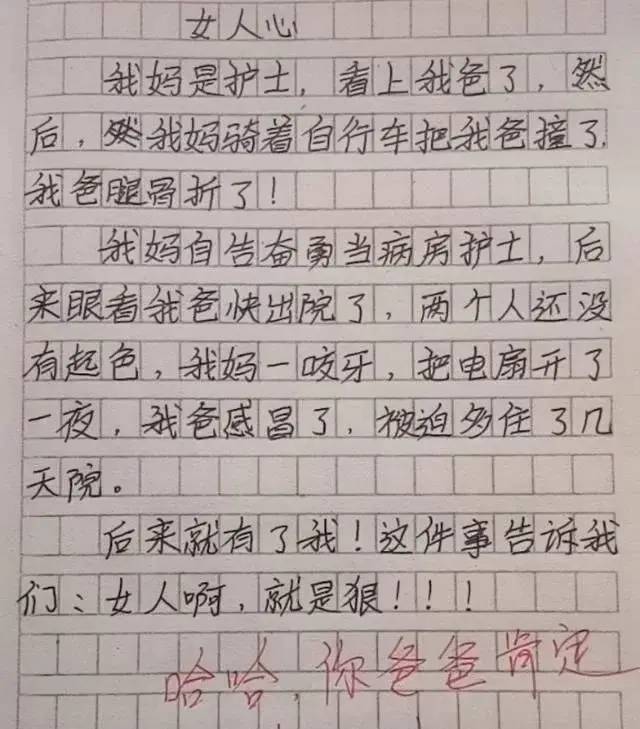 女人心
我妈是护士，看上我爸了，然
后，然我妈骑着自行车把我爸撞了，
我爸腿骨折了！
我妈自告奋勇当病房护士，后
来眼看我爸快出院了，两个人还没
有起色，我妈一咬牙，把电扇开了
一夜，我爸感冒了，被迫多住了几
天院。
后来就有了我！这件事告诉我
们：女人啊，就是狠！！！
哈哈，你爸爸肯定